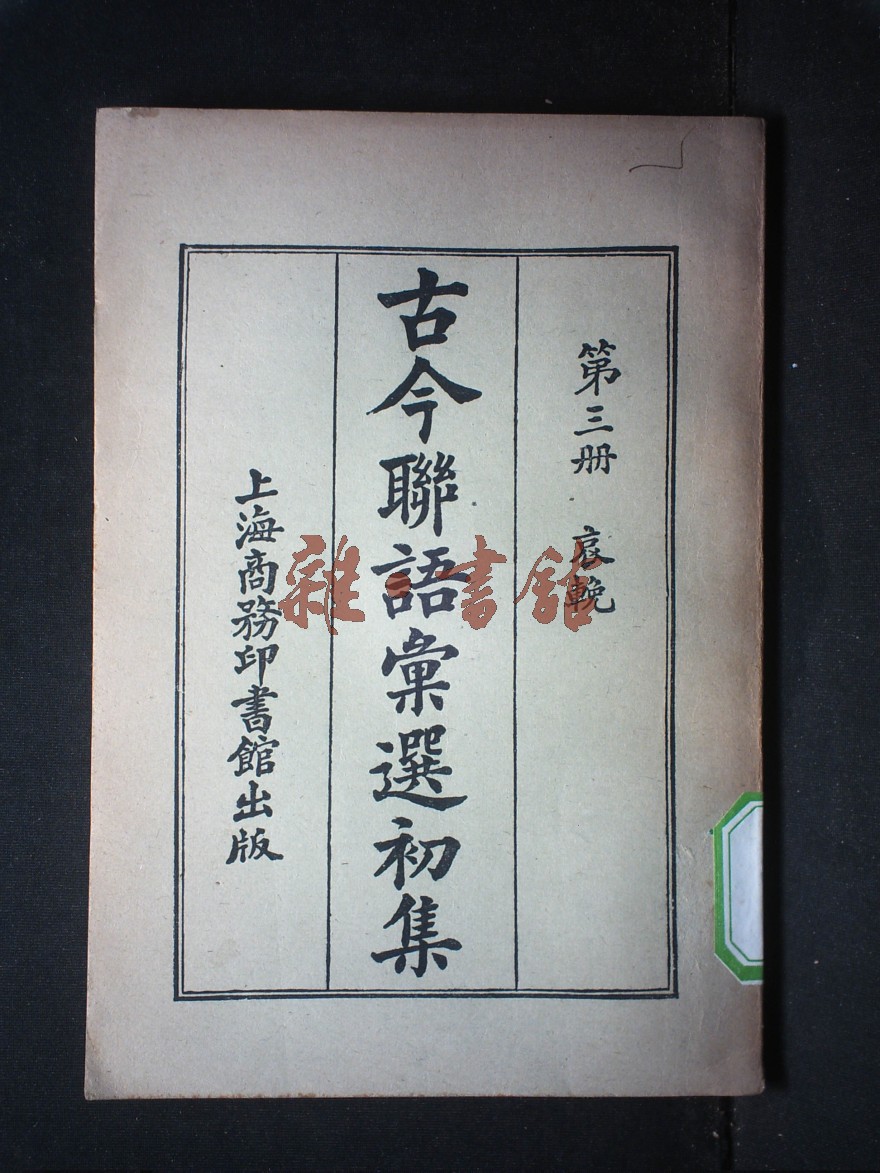 第三册 哀輓
古今聯語彙選初集
上海商務印書館出版
雜·書館